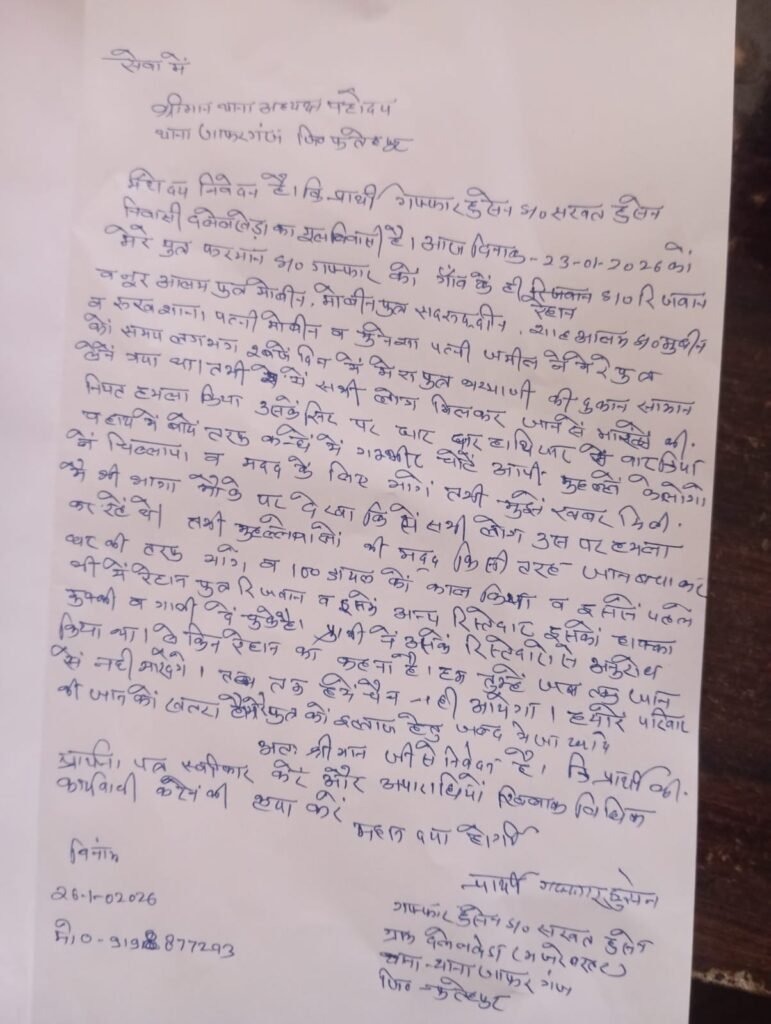 सेवा में
श्रीमान थाना अध्यक्ष महोदय
थाना जाफरगंज जि० फतेहपुर
निवेदन है। कि प्रार्थी गफ्फार हुसेन S/o सखत हुसेन
निवासी दमेनखेड़ा का मूल निवासी है। आज दिनांक - 23-01-2026 को
मेरे पुत्र फरमान S/o गफ्फार को गाँव के ही रिजवान S/o रिजवान
रेहान
व नूर आलम पुत्र मोबीन, मोबीन पुत्र सदरूद्दीन, शाह आलम S/o मुबीन
व रुखशाना पत्नी मोबीन व पत्नी जमील ने मेरे पुत्र
को समय लगभग दिन में मेरा पुत्र की दुकान सामान
लेने गया था। तभी ये सभी लोग मिलकर जान से मारने की
नियत हमला किया उसके सिर पर धार दार हथियार से वार किया
व हाथ में बायें तरफ कन्धे में गम्भीर चोटें आयी मुहल्ले के लोगो
ने चिल्लाया व मदद के लिए भागे तभी मुझे खबर मिली
मै भी भागा मौके पर देखा कि ये सभी लोग उस पर हमला
कर रहें थे। तभी मुहल्लेवालो की मदद किसी तरह जान बचा कर
घर की तरफ भागे व 100 डायल को काल किया व इससे पहले
भी में रेहान पुत्र रिजवान व इसके अन्य रिस्तेदार इसको हाक्का
मुक्की व गाली दे चुके है। प्रार्थी ने उसके रिस्तेदारो से अनुरोध
किया था। लेकिन रेहान का कहना है। हम तुम्हे जब तक जान
से नही मारेंगे। तब तक हमें चैन नही आयेगा। हमारे परिवार
की जान को खतरा है मेरे पुत्र को इल्लाज हेतु जल्द भेजा जाये
अतः श्रीमान जी से निवेदन है। कि प्रार्थी की
प्रार्थना पत्र स्वीकार करें और अपराधियों खिलाफ विधिक
कार्यवाही करने की कृपा करें
महान दया होगी
दिनांक
26-1-02026
मो० - 9198877293
प्रार्थी गफ्फार हुसेन
गफ्फार हुसेन S/o सखत हुसेन
ग्राम दमेनखेड़ा
थाना जाफर गंज
जि० फतेहपुर